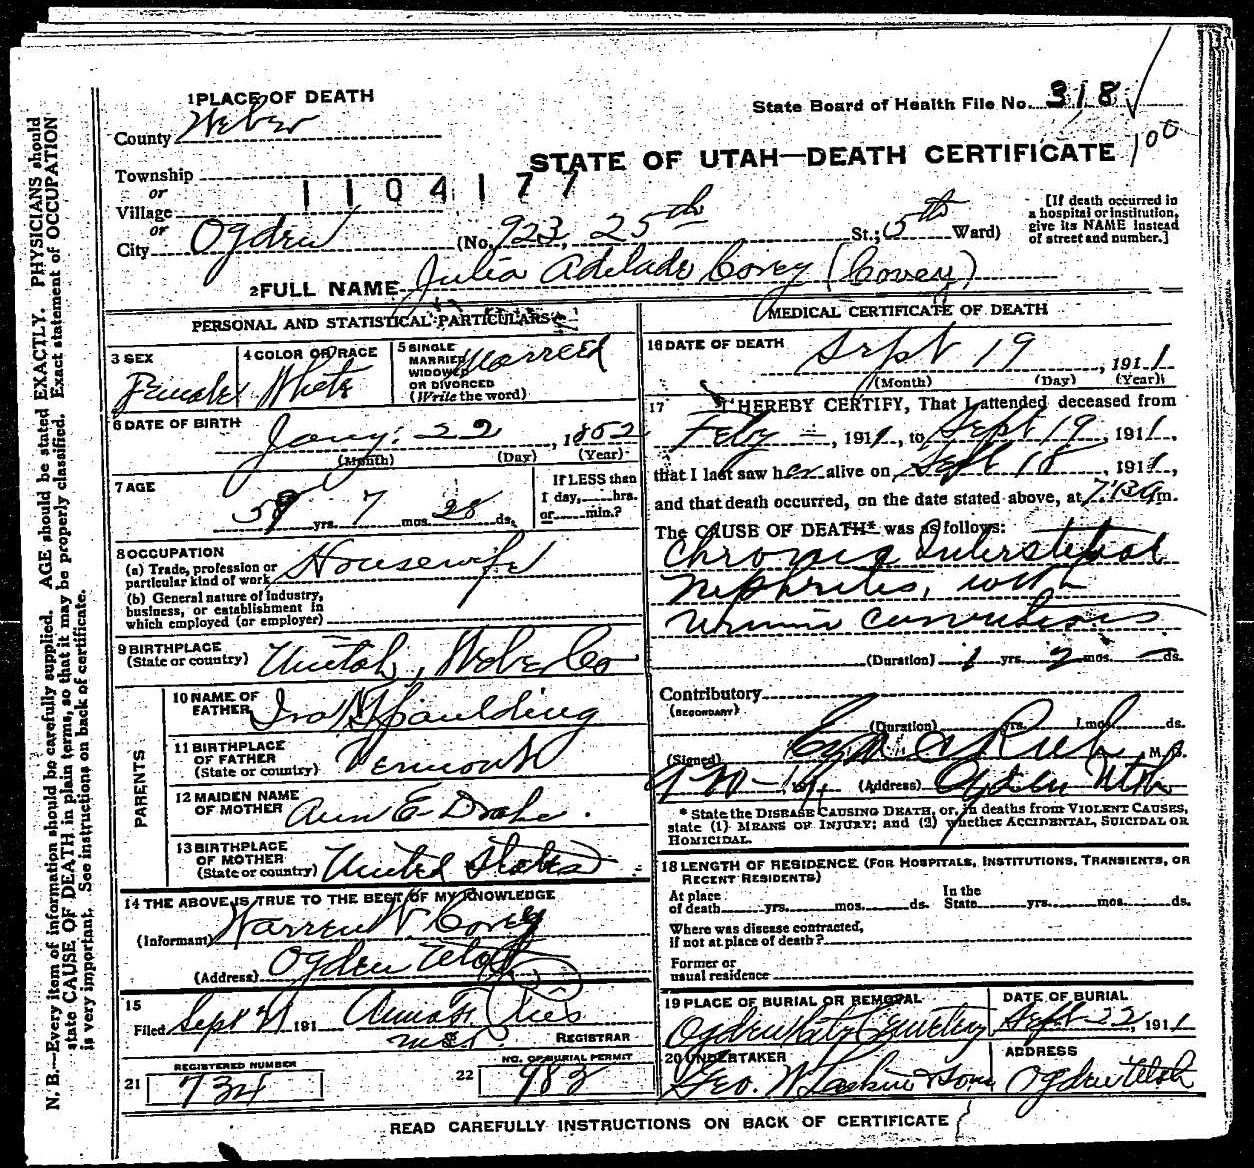 1 PLACE OF DEATH
County Weber
State Board of Health File No. 318
100
STATE OF UTAH—DEATH CERTIFICATE
Township
or
1104177
Village
or
City Ogden (No. 923, 25th St.; 5th Ward)
[If death occurred in
a hospital or institution,
give its NAME instead
of street and number.]
2 FULL NAME Julia Adelade Corey (Corey)
PERSONAL AND STATISTICAL PARTICULARS
3 SEX
Female
4 COLOR OR RACE
White
5 SINGLE
MARRIED
WIDOWED
OR DIVORCED
(Write the word)
Married
6 DATE OF BIRTH
Jany. 22, 1852
(Month) (Day) (Year)
7 AGE
59 yrs. 7 mos. 28 ds.
If LESS than
1 day,......hrs.
or......min.?
8 OCCUPATION
(a) Trade, profession or
particular kind of work Housewife
(b) General nature of industry,
business, or establishment in
which employed (or employer)
9 BIRTHPLACE
(State or country) Uintah, Weber Co
PARENTS
10 NAME OF
FATHER Ira N Spaulding
11 BIRTHPLACE
OF FATHER
(State or country) Vermont
12 MAIDEN NAME
OF MOTHER Ann E Drake.
13 BIRTHPLACE
OF MOTHER
(State or country) United States
14 THE ABOVE IS TRUE TO THE BEST OF MY KNOWLEDGE
(Informant) Warren W. Corey
(Address) Ogden Utah
15
Filed Sept 21 191 Anna F.
REGISTRAR
REGISTERED NUMBER
21 734
NO. OF BURIAL PERMIT
22 982
MEDICAL CERTIFICATE OF DEATH
16 DATE OF DEATH
Sept 19, 1911
(Month) (Day) (Year)
17 I HEREBY CERTIFY, That I attended deceased from
Feby —, 1911, to Sept 19, 1911,
that I last saw her alive on Sept 18, 1911,
and that death occurred, on the date stated above, at 7:30 a m.
The CAUSE OF DEATH* was as follows:
Chronic Interstitial
Nephritis, with
Uremic Convulsions
(Duration) 1 yrs. 2 mos. — ds.
Contributory
(SECONDARY)
(Duration) yrs. mos. ds.
(Signed) Rich M. D.
191 (Address) Ogden Utah
* State the DISEASE CAUSING DEATH, or, in deaths from VIOLENT CAUSES,
state (1) MEANS OF INJURY; and (2) whether ACCIDENTAL, SUICIDAL OR
HOMICIDAL.
18 LENGTH OF RESIDENCE (FOR HOSPITALS, INSTITUTIONS, TRANSIENTS, OR
RECENT RESIDENTS)
At place
of death......yrs......mos......ds.
In the
State......yrs......mos......ds.
Where was disease contracted,
if not at place of death?
Former or
usual residence
19 PLACE OF BURIAL OR REMOVAL
Ogden City Cemetery
DATE OF BURIAL
Sept 22, 1911
20 UNDERTAKER
Geo. W Larkin & Sons
ADDRESS
Ogden Utah
READ CAREFULLY INSTRUCTIONS ON BACK OF CERTIFICATE
N. B.—Every item of information should be carefully supplied. AGE should be stated EXACTLY. PHYSICIANS should
state CAUSE OF DEATH in plain terms, so that it may be properly classified. Exact statement of OCCUPATION
is very important. See instructions on back of certificate.